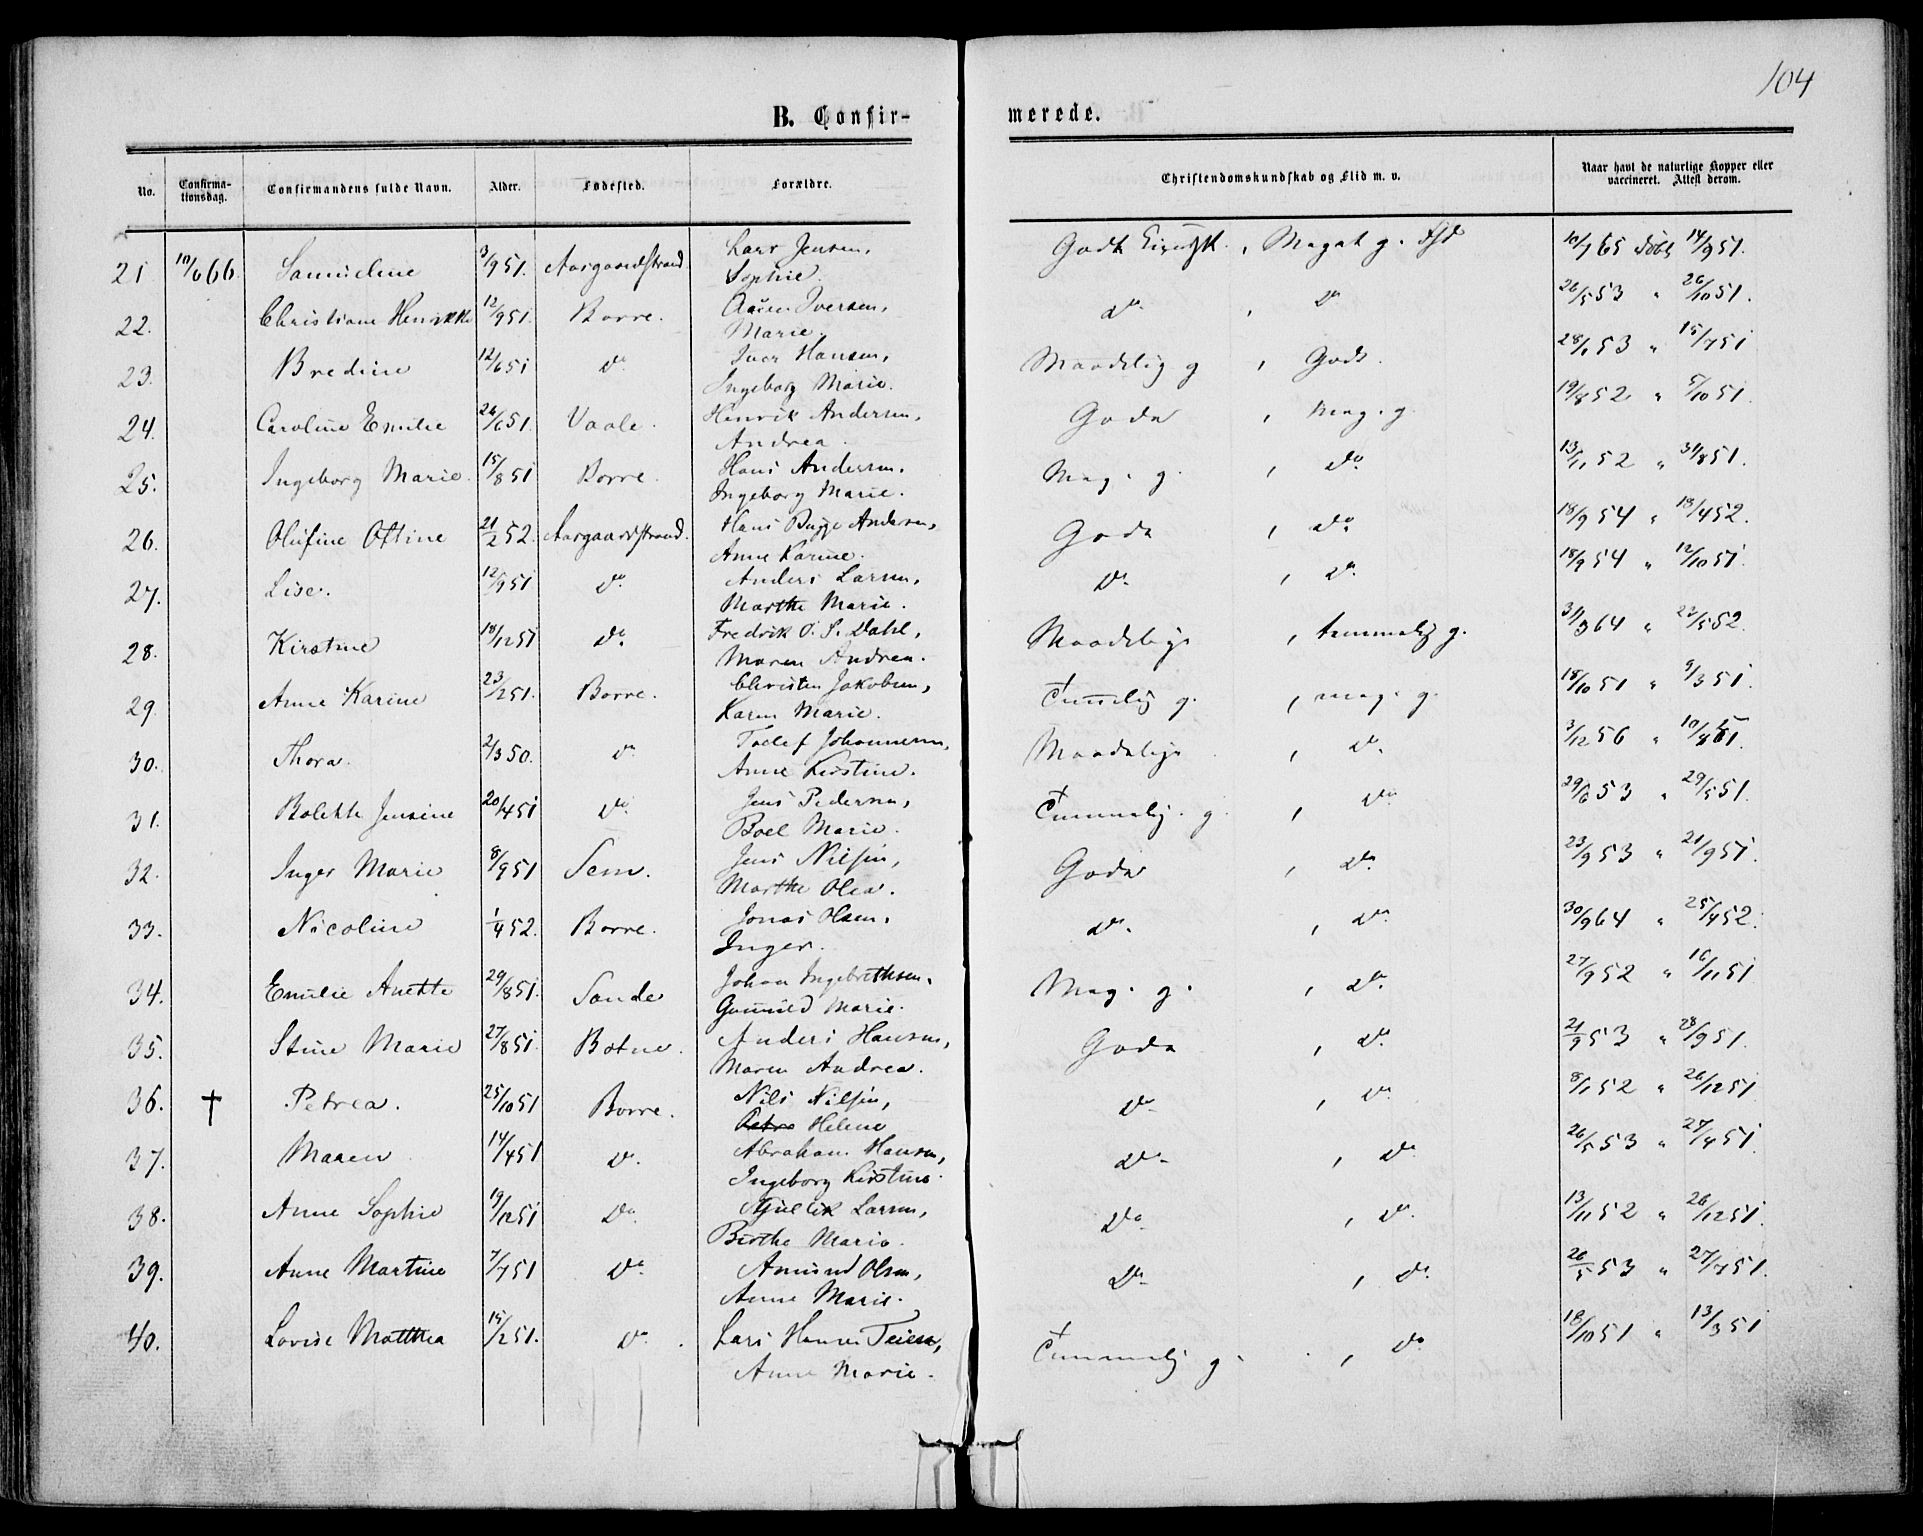 104
B. Confir-
merede.
No. Confirma-tionsdag. Confirmandens fulde Navn. Alder. Fødested. Forældre. Christendomskundskab og Flid m. v. Naar havt de naturlige Kopper eller vaccineret. Attest derom.
Lars Jensen,
21 10/6 66. Samueline 3/9 51. Aasgaardstrand Sophie. Godt , Meget g. Fld 10/7 65 Døbt 14/9 51.
Iversen,
22. Christiane Henrikke 12/9 51. Borre. Marie. do , do 26/5 53 " 26/10 51.
Iver Hansen,
23. Bredine 12/6 51 do Ingeborg Marie. Maadelig g , Godt. 28/1 53 " 15/7 51
Henrik Andersen,
24. Caroline Emilie 26/6 51. Vaale. Andrea. Godt , Meg. g. 19/8 52 " 5/10 51.
Hans Andersen.
25. Ingeborg Marie. 15/8 51 Borre. Ingeborg Marie. Meg. g. , do 13/11 52 " 31/8 51.
Hans Bugge Andersen,
26. Olufine Ottine 21/2 52. Aasgaardstrand. Anne Karine. Godt , do 18/9 54 " 18/4 52.
Anders Larsen,
27. Lise. 12/9 51 do Marthe Marie. do , do 18/9 54 " 12/10 51.
Fredrik O. S. Dahl,
28. Kirstine 18/12 51 do Maren Andrea. Maadelig , temmelig g. 31/3 64 " 23/5 52.
Christen Jakobsen,
29. Anne Karine 23/1 251. Borre. Karen Marie. Temmelig g. , meg. g. 18/10 51 " 9/3 51.
Tollef Johannesen,
30. Thora. 2/3 50. do Anne Kirstine. Maadelig , do 3/12 56 " 10/8 51.
Jens Pedersen,
31. Bolette Jensine 20/4 51 do Boel Marie. Temmelig g. , do 29/6 53 " 29/5 51.
Jens Nilsen,
32. Inger Marie 8/9 51 Sem. Marthe Olea. Godt , do 23/9 53 " 21/9 51.
Jonas Olsen,
33. Nicoline 1/4 52. Borre. Inger. do , do 30/9 64 " 25/4 52.
Johan Ingebrethsen.
34. Emilie Anette 29/8 51. Sande Gunnild Marie. Meg. g. , do 27/9 52 " 16/11 51
Anders Hansen,
35. Stine Marie 27/8 51. Botne. Maren Andrea. Godt , do 21/9 53 " 28/9 51.
36. † Petrea. 25/10 51 Borre. Nils Nilsen, do , do 8/1 52 " 26/12 51
Helene
37. Maren 14/4 51 do Abraham Hansen, do , do 26/5 53 " 27/4 51.
Ingeborg Kirstine.
38. Anne Sophie 19/12 51 do Gullik Larsen, do , do 13/11 52 " 26/12 51.
Birthe Marie.
39. Anne Martine 7/7 51 do Amund Olsen, do , do 26/5 53 " 27/7 51.
Anne Marie.
40. Lovise Matthea 15/1 251. do Lars Hansen Teien, Temmelig g. , do 18/10 51 " 13/3 51
Anne Marie.